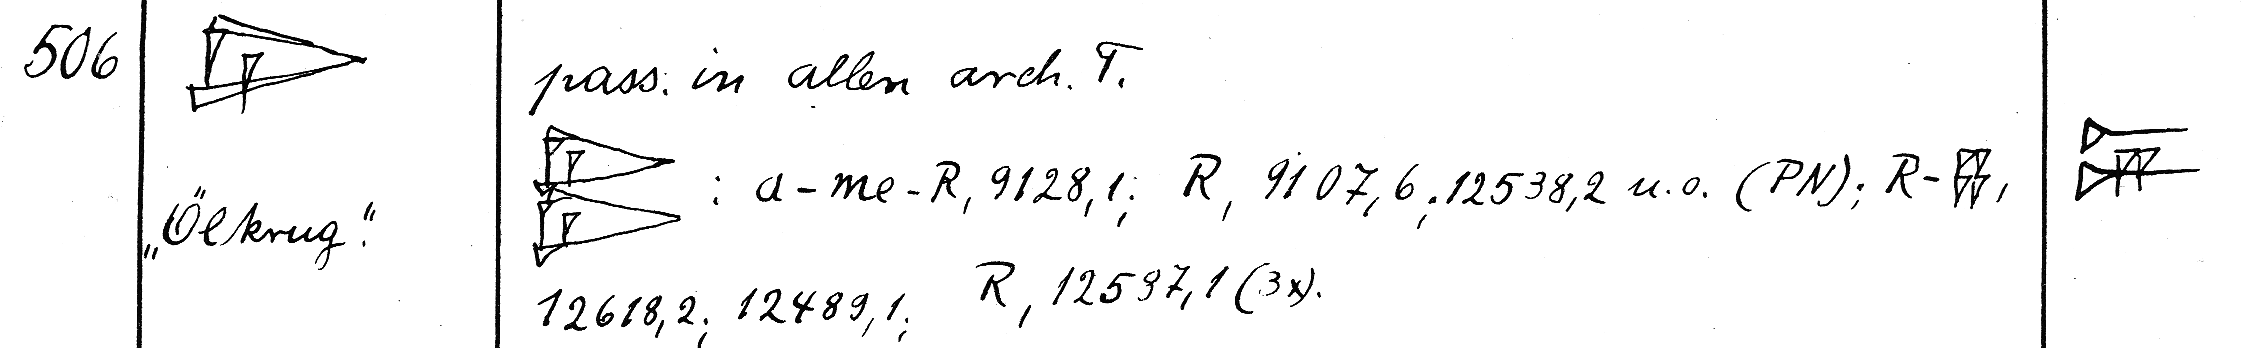 506
pass. in allen arch. T.
: a-me-R, 9128,1; R, 9107,6; 12538,2 u.o. (PN); R-
„Ölkrug“.
12618,2; 12489,1; R, 12537,1 (3x).